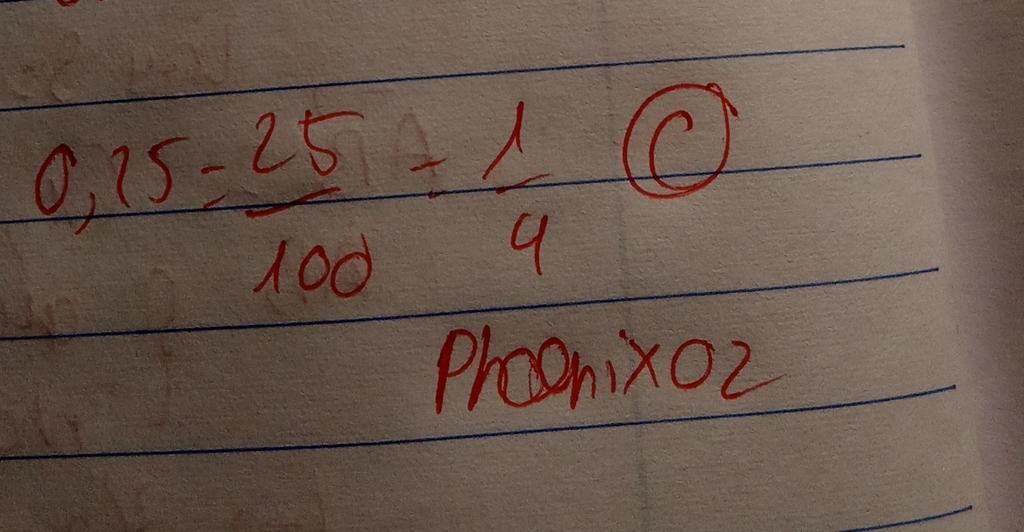 0,25 = 25/100 = 1/4 C
Phoenix02